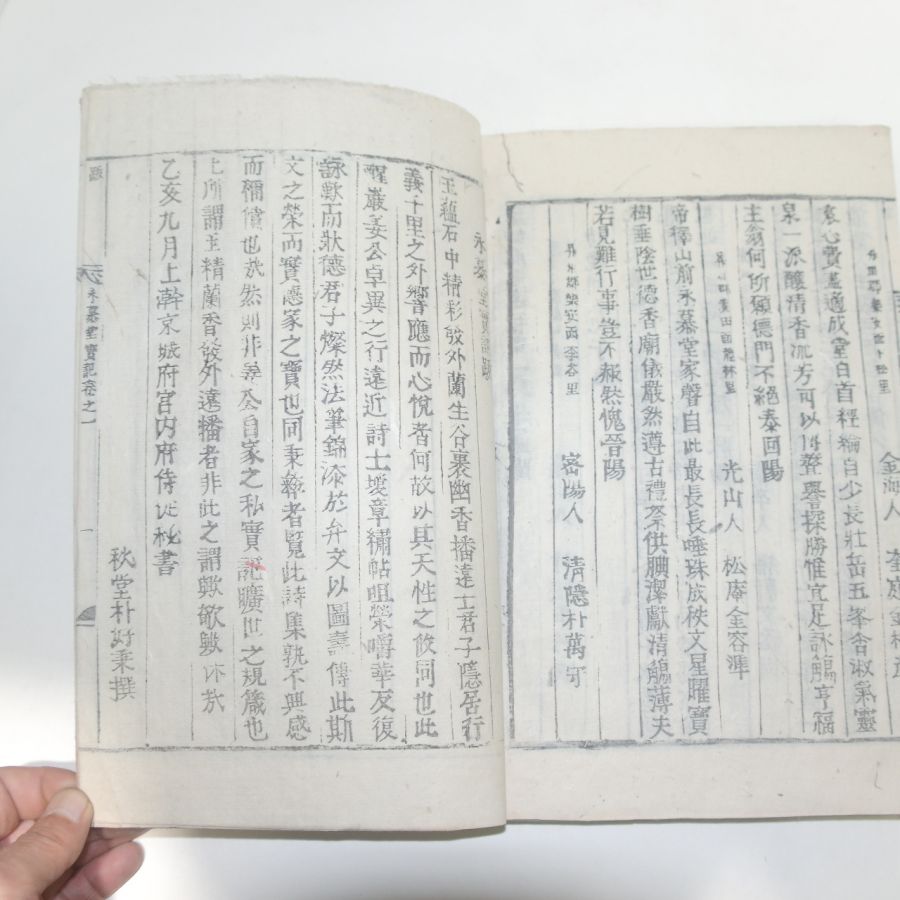 金海人
心費盡適成堂白首經綸自少長壯岳五峯會淑氣靈
泉一派釀淸香流芳可以 聲譽探勝惟宜足詠觴亨福
主翁何所願德門不絶泰回陽
光山人 松庵金容準
帝釋山前永慕堂家聲自此最長長唾珠成秩文星曜寶
樹垂陰世德香廟儀嚴然遵古禮祭供腆潔獻淸觴薄夫
若見難行事豈不赧然愧晉陽
面李谷里 密陽人 淸隱朴萬守
永慕堂實記跋
玉蘊石中精彩發外蘭生谷裏幽香播遠士君子隱居行
義千里之外響應而心悅者何故以其天性之攸同也此
惺巖姜公卓異之行遠近詩士瓊章繡帖咀榮嚼華反復
詠歎而狀德君子燦然法筆錦添於弁文以圖壽傳此斯
文之榮而實憑家之寶也同秉彝者覽此詩集孰不興感
而彌償也哉然則非善公自家之私實記曠世之規箴也
上所謂玉精蘭香發外遠播者非此之謂歟欽歟休哉
乙亥九月上澣京城府宮內府侍從秘書
秋堂朴好秉撰
永慕堂實記卷之一
跋
一